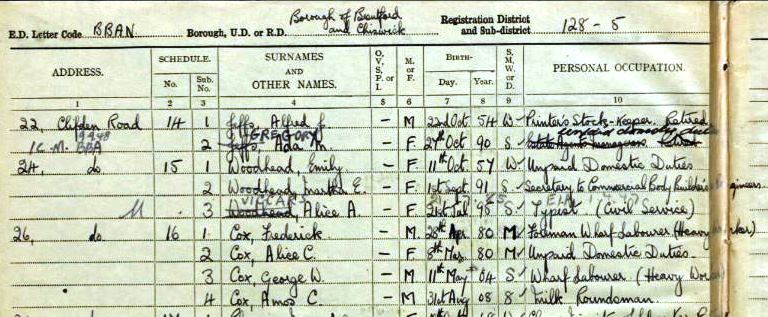 E.D. Letter Code BBAN Borough, U.D. or R.D. Borough of Brentford and Chiswick Registration District and Sub-district 128-5
ADDRESS. SCHEDULE. SURNAMES AND OTHER NAMES. O, V, S, P, or I. M. or F. BIRTH- S. M. W. or D. PERSONAL OCCUPATION.
No. Sub. No. Day. Year.
1 2 3 4 5 6 7 8 9 10
22, Clifden Road 14 1 Jeffs, Alfred J. — M 22nd Oct 54 W Printer's Stock-Keeper. Retired
GREGORY unpaid domestic duties
BBA 2 Jeffs, Ada M. — F 27th Oct 90 S
24, do 15 1 Woodhead, Emily — F 11th Oct. 57 W Unpaid Domestic Duties
2 Woodhead, Martha E. — F 1st Sept. 91 S Secretary to Commercial Body Builders Engineers.
VICCARS
M 3 Woodhead, Alice A. — F 21st 95 S Typist (Civil Service)
26, do 16 1 Cox, Frederick — M. 28th Apr. 80 M Foreman Wharf Labourer (Heavy Worker)
2 Cox, Alice C. — F 8th Mar. 80 M Unpaid Domestic Duties.
3 Cox, George W. — M 11th May 04 S Wharf Labourer (Heavy Worker)
4 Cox, Amos C. — M 31st Aug 08 S Milk Roundsman.